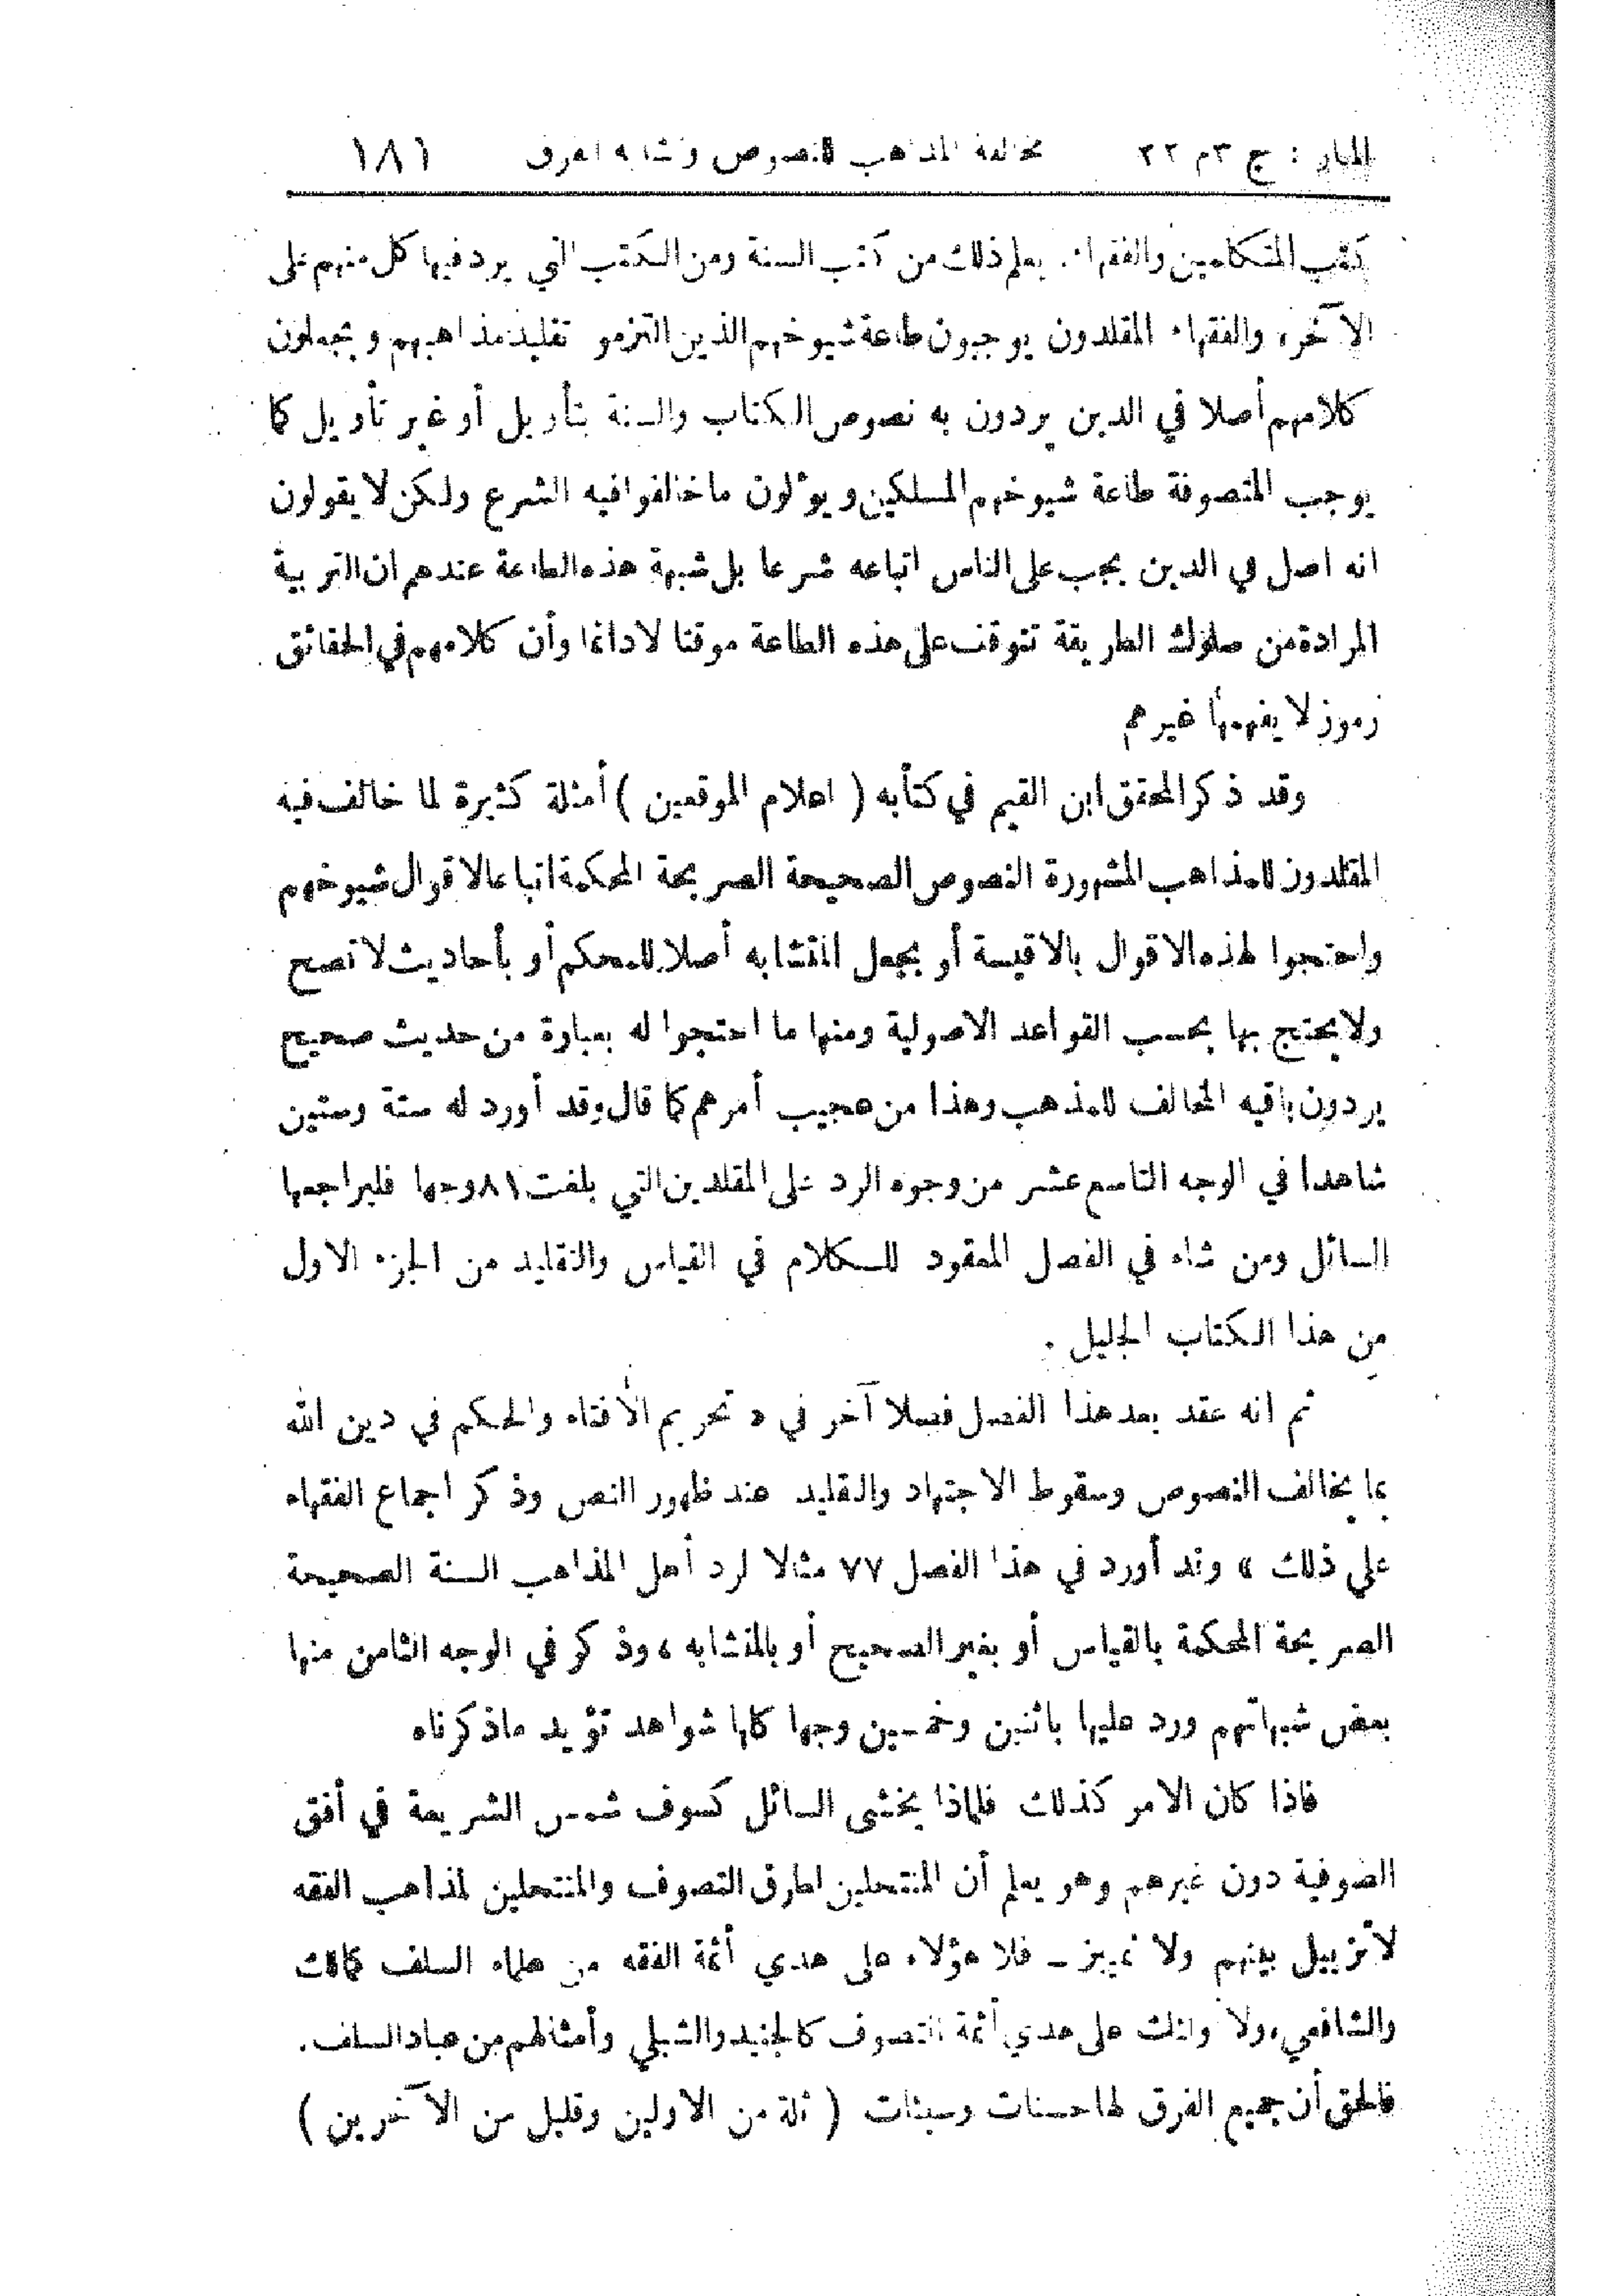 المنار : ج ٣ م ٢٢ مخالفة المذاهب للنصوص وتشابه الفرق ١٨١
كتب المتكلمين والفقهاء. يعلم ذلك من كتب السنة ومن الكتب التي يرد فيها كل منهم على
الآخر، والفقهاء المقلدون يوجبون طاعة شيوخهم الذين التزمو تقليد مذاهبهم ويجعلون
كلامهم أصلا في الدين يردون به نصوص الكتاب والسنة بتأويل أو غير تأويل كما
يوجب المتصوفة طاعة شيوخهم المسلكين ويؤلون ما خالفوا فيه الشرع ولكن لا يقولون
انه اصل في الدين يجب على الناس اتباعه شرعا بل شبهة هذه الطاعة عندهم ان التربية
المرادة من سلوك الطريقة تتوقف على هذه الطاعة موقتا لا دائما وأن كلامهم في الحقائق
رموز لا يفهمها غيرهم
وقد ذكر المحقق ابن القيم في كتابه ( اعلام الموقعين ) أمثلة كثيرة لما خالف فيه
المقلدون للمذاهب المشهورة النصوص الصحيحة الصريحة المحكمة اتباعا لاقوال شيوخهم
واحتجوا لهذه الاقوال بالاقيسة أو بجعل المتشابه أصلا للمحكم أو بأحاديث لا تصح
ولا يحتج بها بحسب القواعد الاصولية ومنها ما احتجوا له بعبارة من حديث صحيح
يردون باقيه المخالف للمذهب وهذا من عجيب أمرهم كما قال وقد أورد له ستة وستين
شاهدا في الوجه التاسع عشر من وجوه الرد على المقلدين التي بلغت ٨١ وجها فليراجعها
السائل ومن شاء في الفصل المعقود للكلام في القياس والتقليد من الجزء الاول
من هذا الكتاب الجليل .
ثم انه عقد بعد هذا الفصل فصلا آخر في « تحريم الأفتاء والحكم في دين الله
بما يخالف النصوص وسقوط الاجتهاد والتقليد عند ظهور النص وذكر اجماع الفقهاء
على ذلك » وقد أورد في هذا الفصل ٧٧ مثالا لرد أهل المذاهب السنة الصحيحة
الصريحة المحكمة بالقياس أو بغير الصحيح أو بالمتشابه ، وذكر في الوجه الثامن منها
بعض شبهاتهم ورد عليها باثنين وخمسين وجها كلها شواهد تؤيد ماذكرناه
فاذا كان الامر كذلك فلماذا يخشى السائل كسوف شمس الشريعة في أفق
الصوفية دون غيرهم وهو يعلم أن المنتحلين لطرق التصوف والمنتحلين لمذاهب الفقه
لا تزييل بينهم ولا تمييز ــ فلا هؤلاء على هدي أئمة الفقه من علماء السلف كمالك
والشافعي، ولا أولئك على هدي أئمة التصوف كالجنيد والشبلي وأمثالهم من عباد السلف.
فالحق أن جميع الفرق لها حسنات وسيئات ( ثلة من الاولين وقليل من الآخرين )